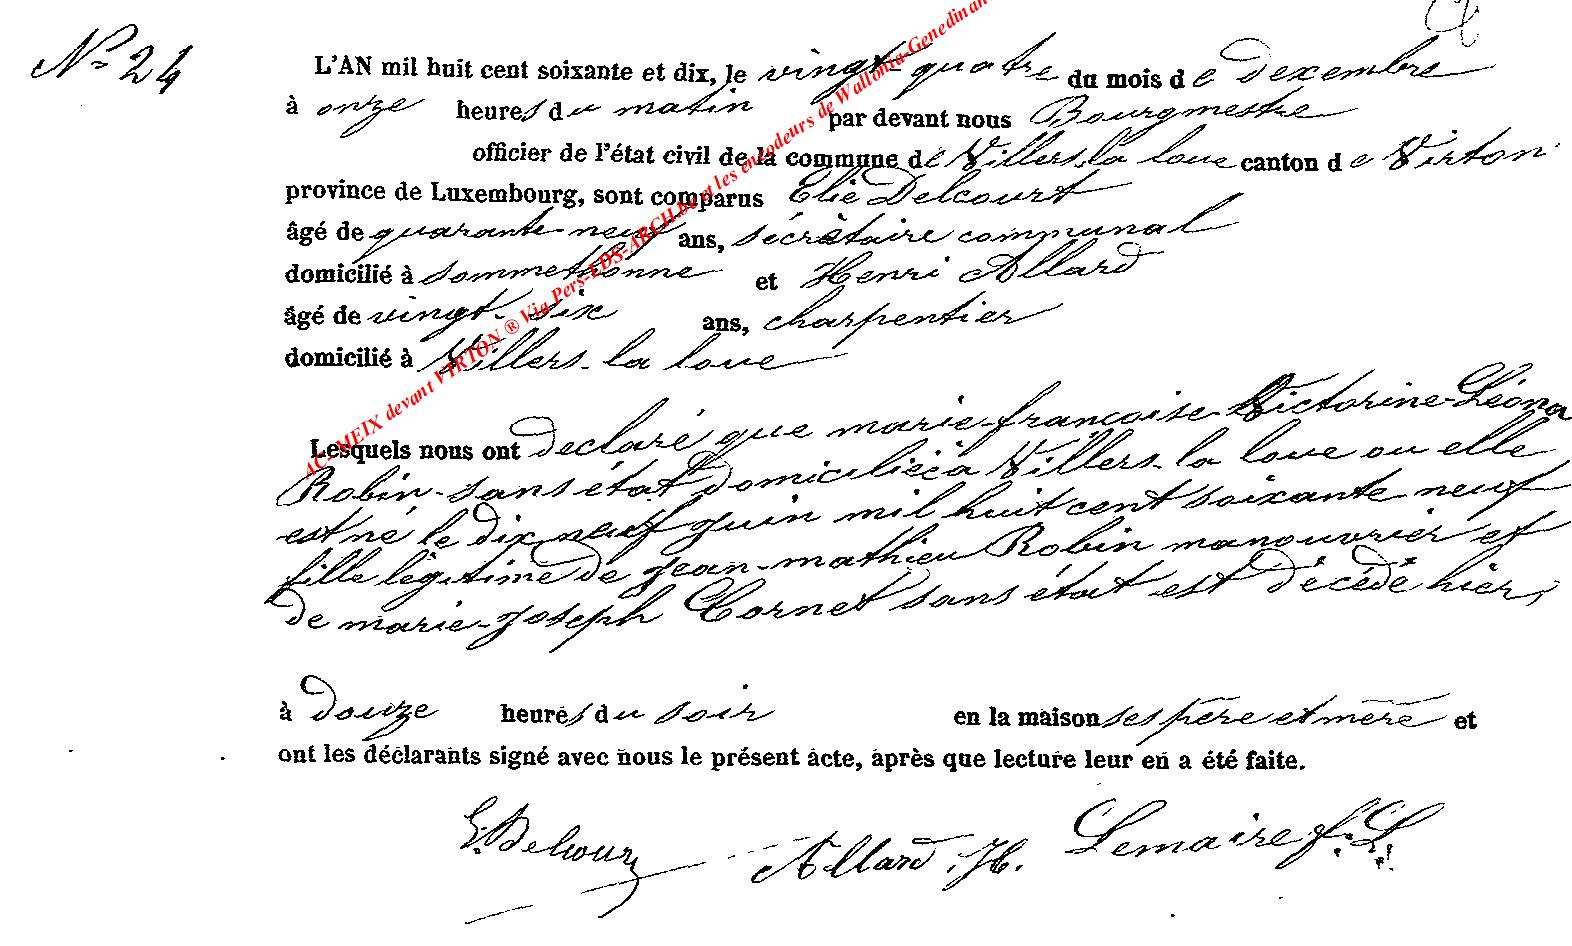 N° 24
L'AN mil huit cent soixante et dix, le vingt quatre du mois de dexembre
à onze heures du matin par devant nous Bourgmestre
officier de l'état civil de la commune de Villers-la loue canton de Virton
province de Luxembourg, sont comparus Elie Delcourt
âgé de quarante-neuf ans, sécrètaire communal
domicilié à Sommethonne et Henri Allard
âgé de vingt-six ans, charpentier
domicilié à Villers-la loue
Lesquels nous ont declaré que marie-françoise-Victorine-Léona
Robin-sans état domiciliée à Villers-la loue ou elle
est né le dix neuf Juin mil huit cent soixante neuf
fille légitime de Jean-mathieu Robin manouvrier et
de marie-Joseph Cornet sans état est décédé hier,
à douze heures du soir en la maison ses père et mère et
ont les déclarants signé avec nous le présent acte, après que lecture leur en a été faite.
E. Delcourt Allard . H. Lemaire f. L.
AC-MEIX devant VIRTON ® Via Pers-LDS-ARCH.be et les encodeurs de Wallonia-Genedinan